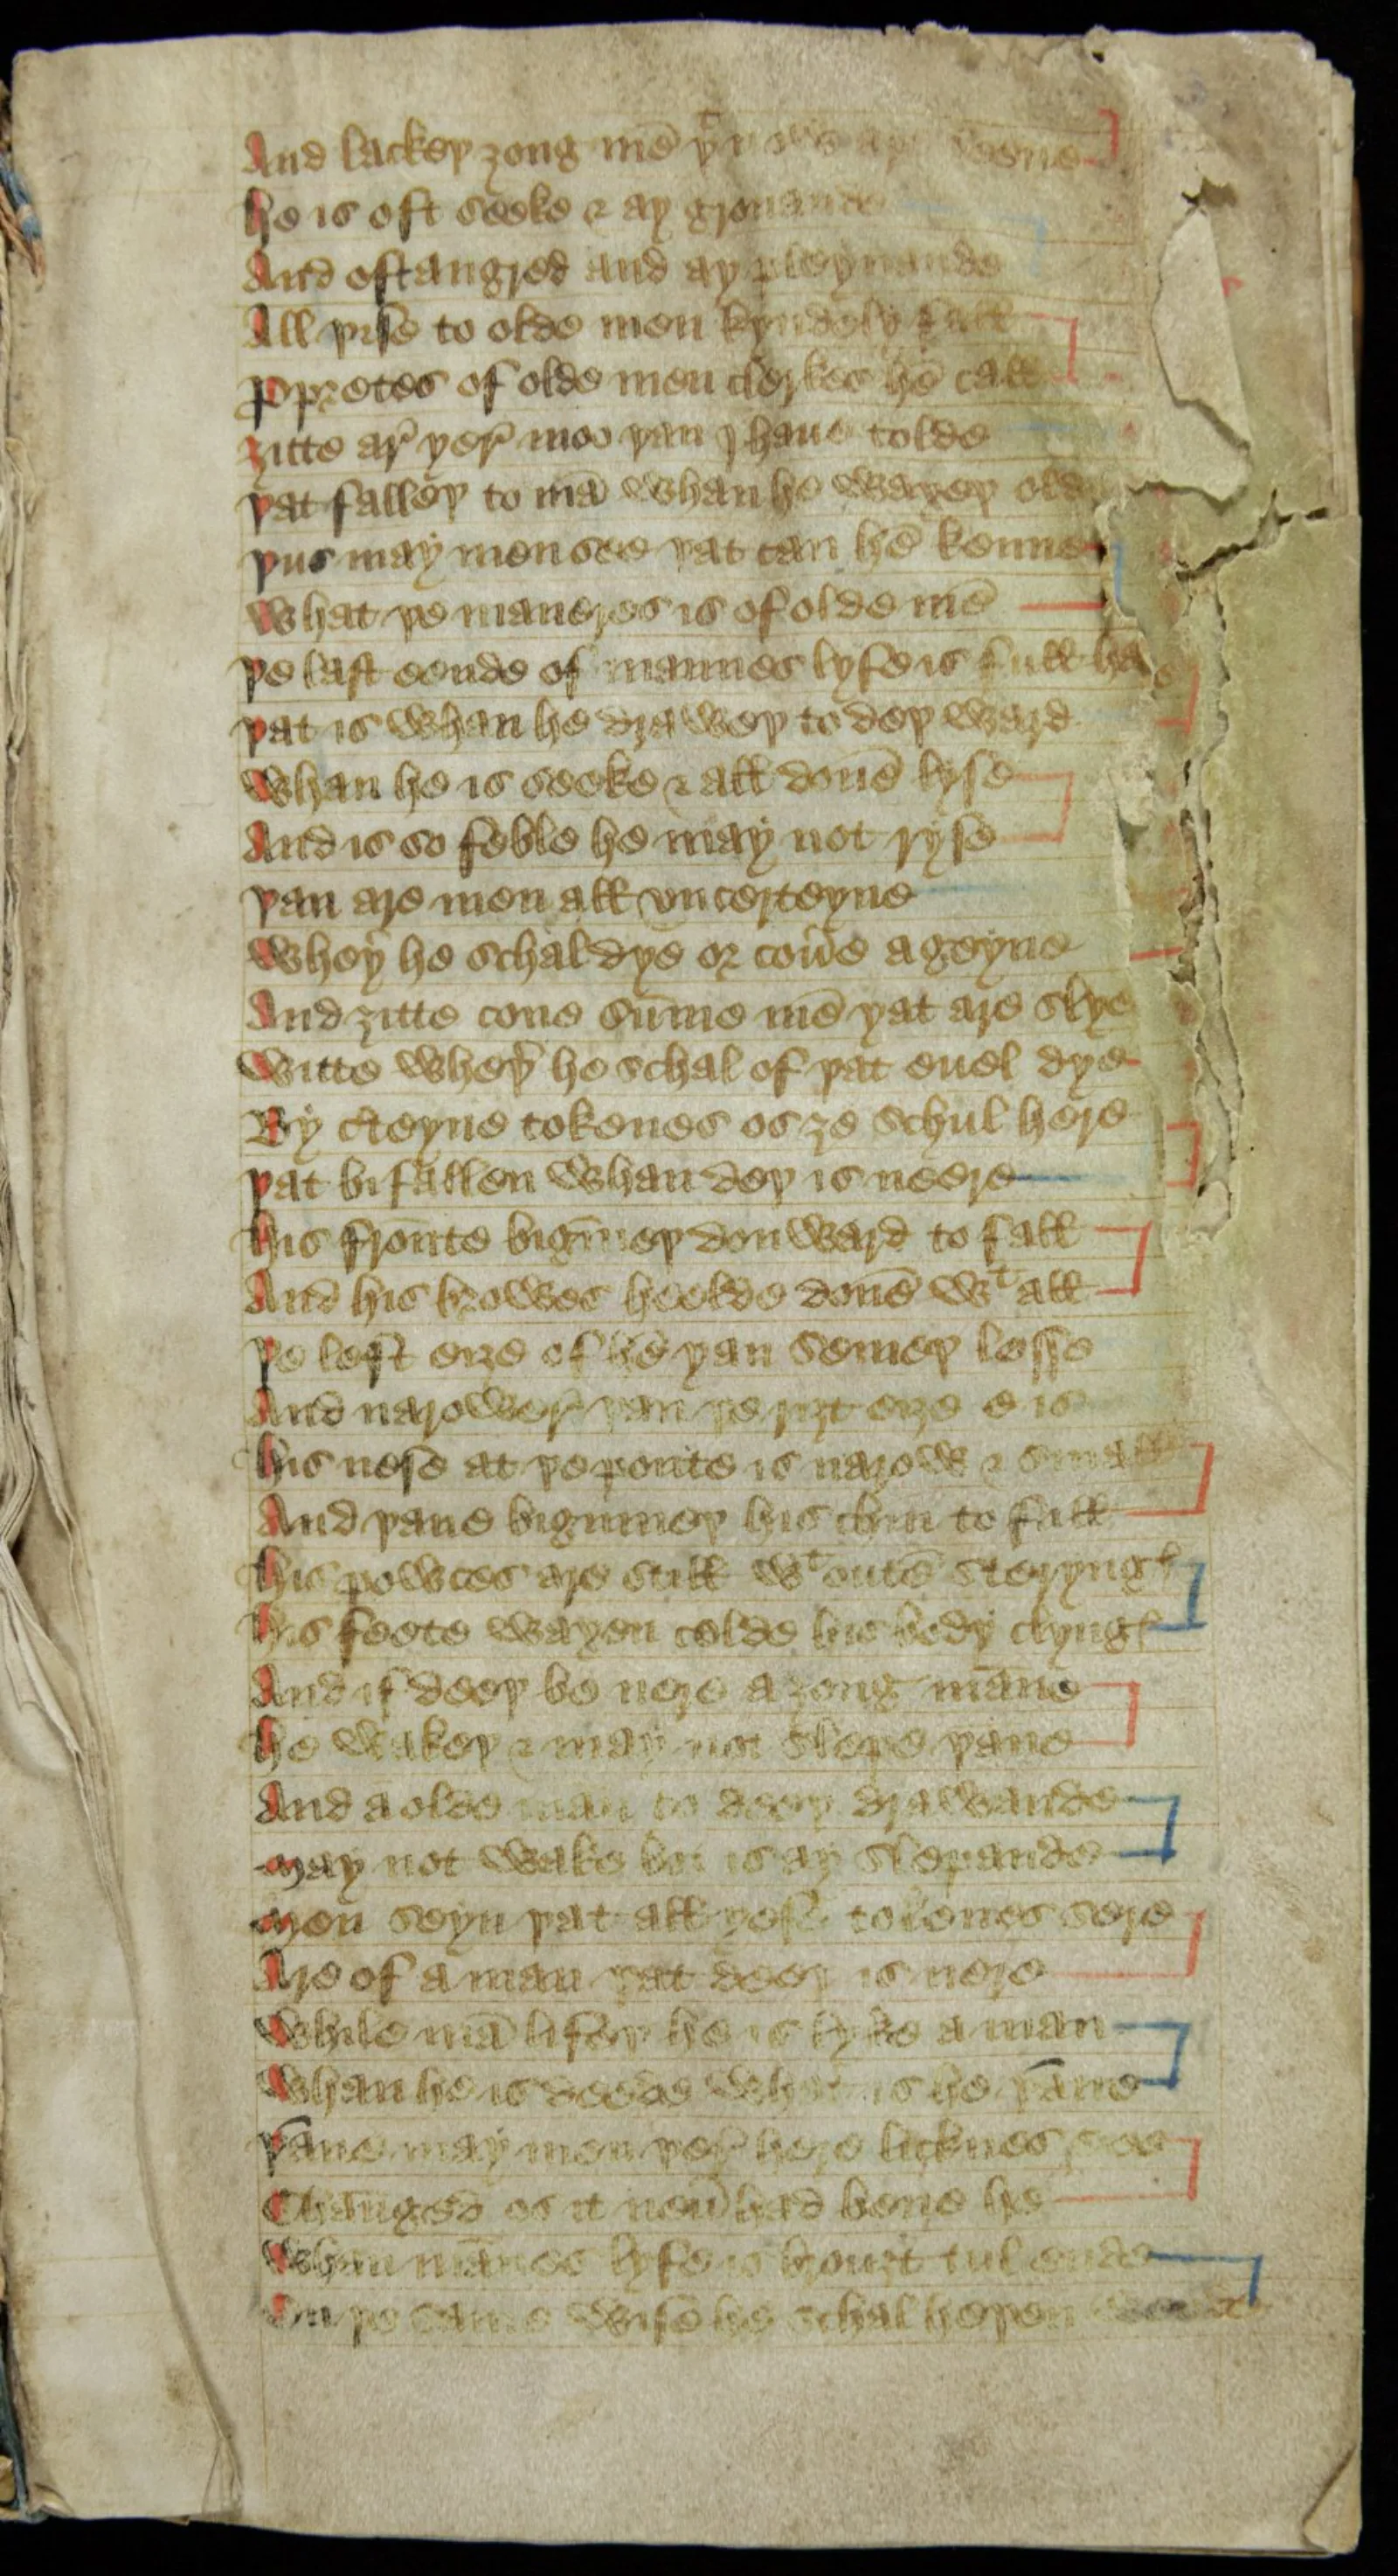 And lackeþ ȝong mē þt
he is oft seeke ⁊ ay gronande
And oft angred and ay pleynande
All þise to olde men kyndely fall
ꝓpretes of olde men clerkes hē call
ȝitte ar̉ þer̉ moo þan I haue tolde
þat falleþ to mā whan he waxeþ olde
þus may men see þat can hē kenne
What þe maneres is of olde mē
þe last eende of mannes lyfe is full
þat is whan he draweþ to deþ ward
Whan he is seeke ⁊ all donē lyse
And is so feble he may not ryse
þan are men all vncerteyne
Wheþ̉ he schal dye or coủe ageyne
And ȝitte cone sūme mē þat are slye
Witte wheþ̉ he schal of þat euel dye
By c̉teyne tokenes os ȝe schul here
þat bifallen whan deþ is neere
his fronte bigīneþ don ward to fall
And his browes heelde donē wt all
þe left eiȝe of hē þan semeþ lesse
And narower̉ þan þe riȝt eiȝe is
his nese at þe poȳte is narow ⁊ small
And þane biginneþ his chin to fall
his powces are still wt outē steryng
his feete waxen colde his body clyng
And if deeþ be nere a ȝong māne
he wakeþ ⁊ may not slepe þane
And a olde man to deeþ drawande
may not wake but is ay slepande
men seyn þat all þese tokenes sere
Are of a man þat deeþ is nere
While mā lifeþ he is lyke a man
Whan he is deede what is he þāne
þāne may men þer̉ here licknes see
Chaūged os it neủ had bene he
Whan mānes lyfe is brouȝt tul ende
On þe same wise he schal heþen